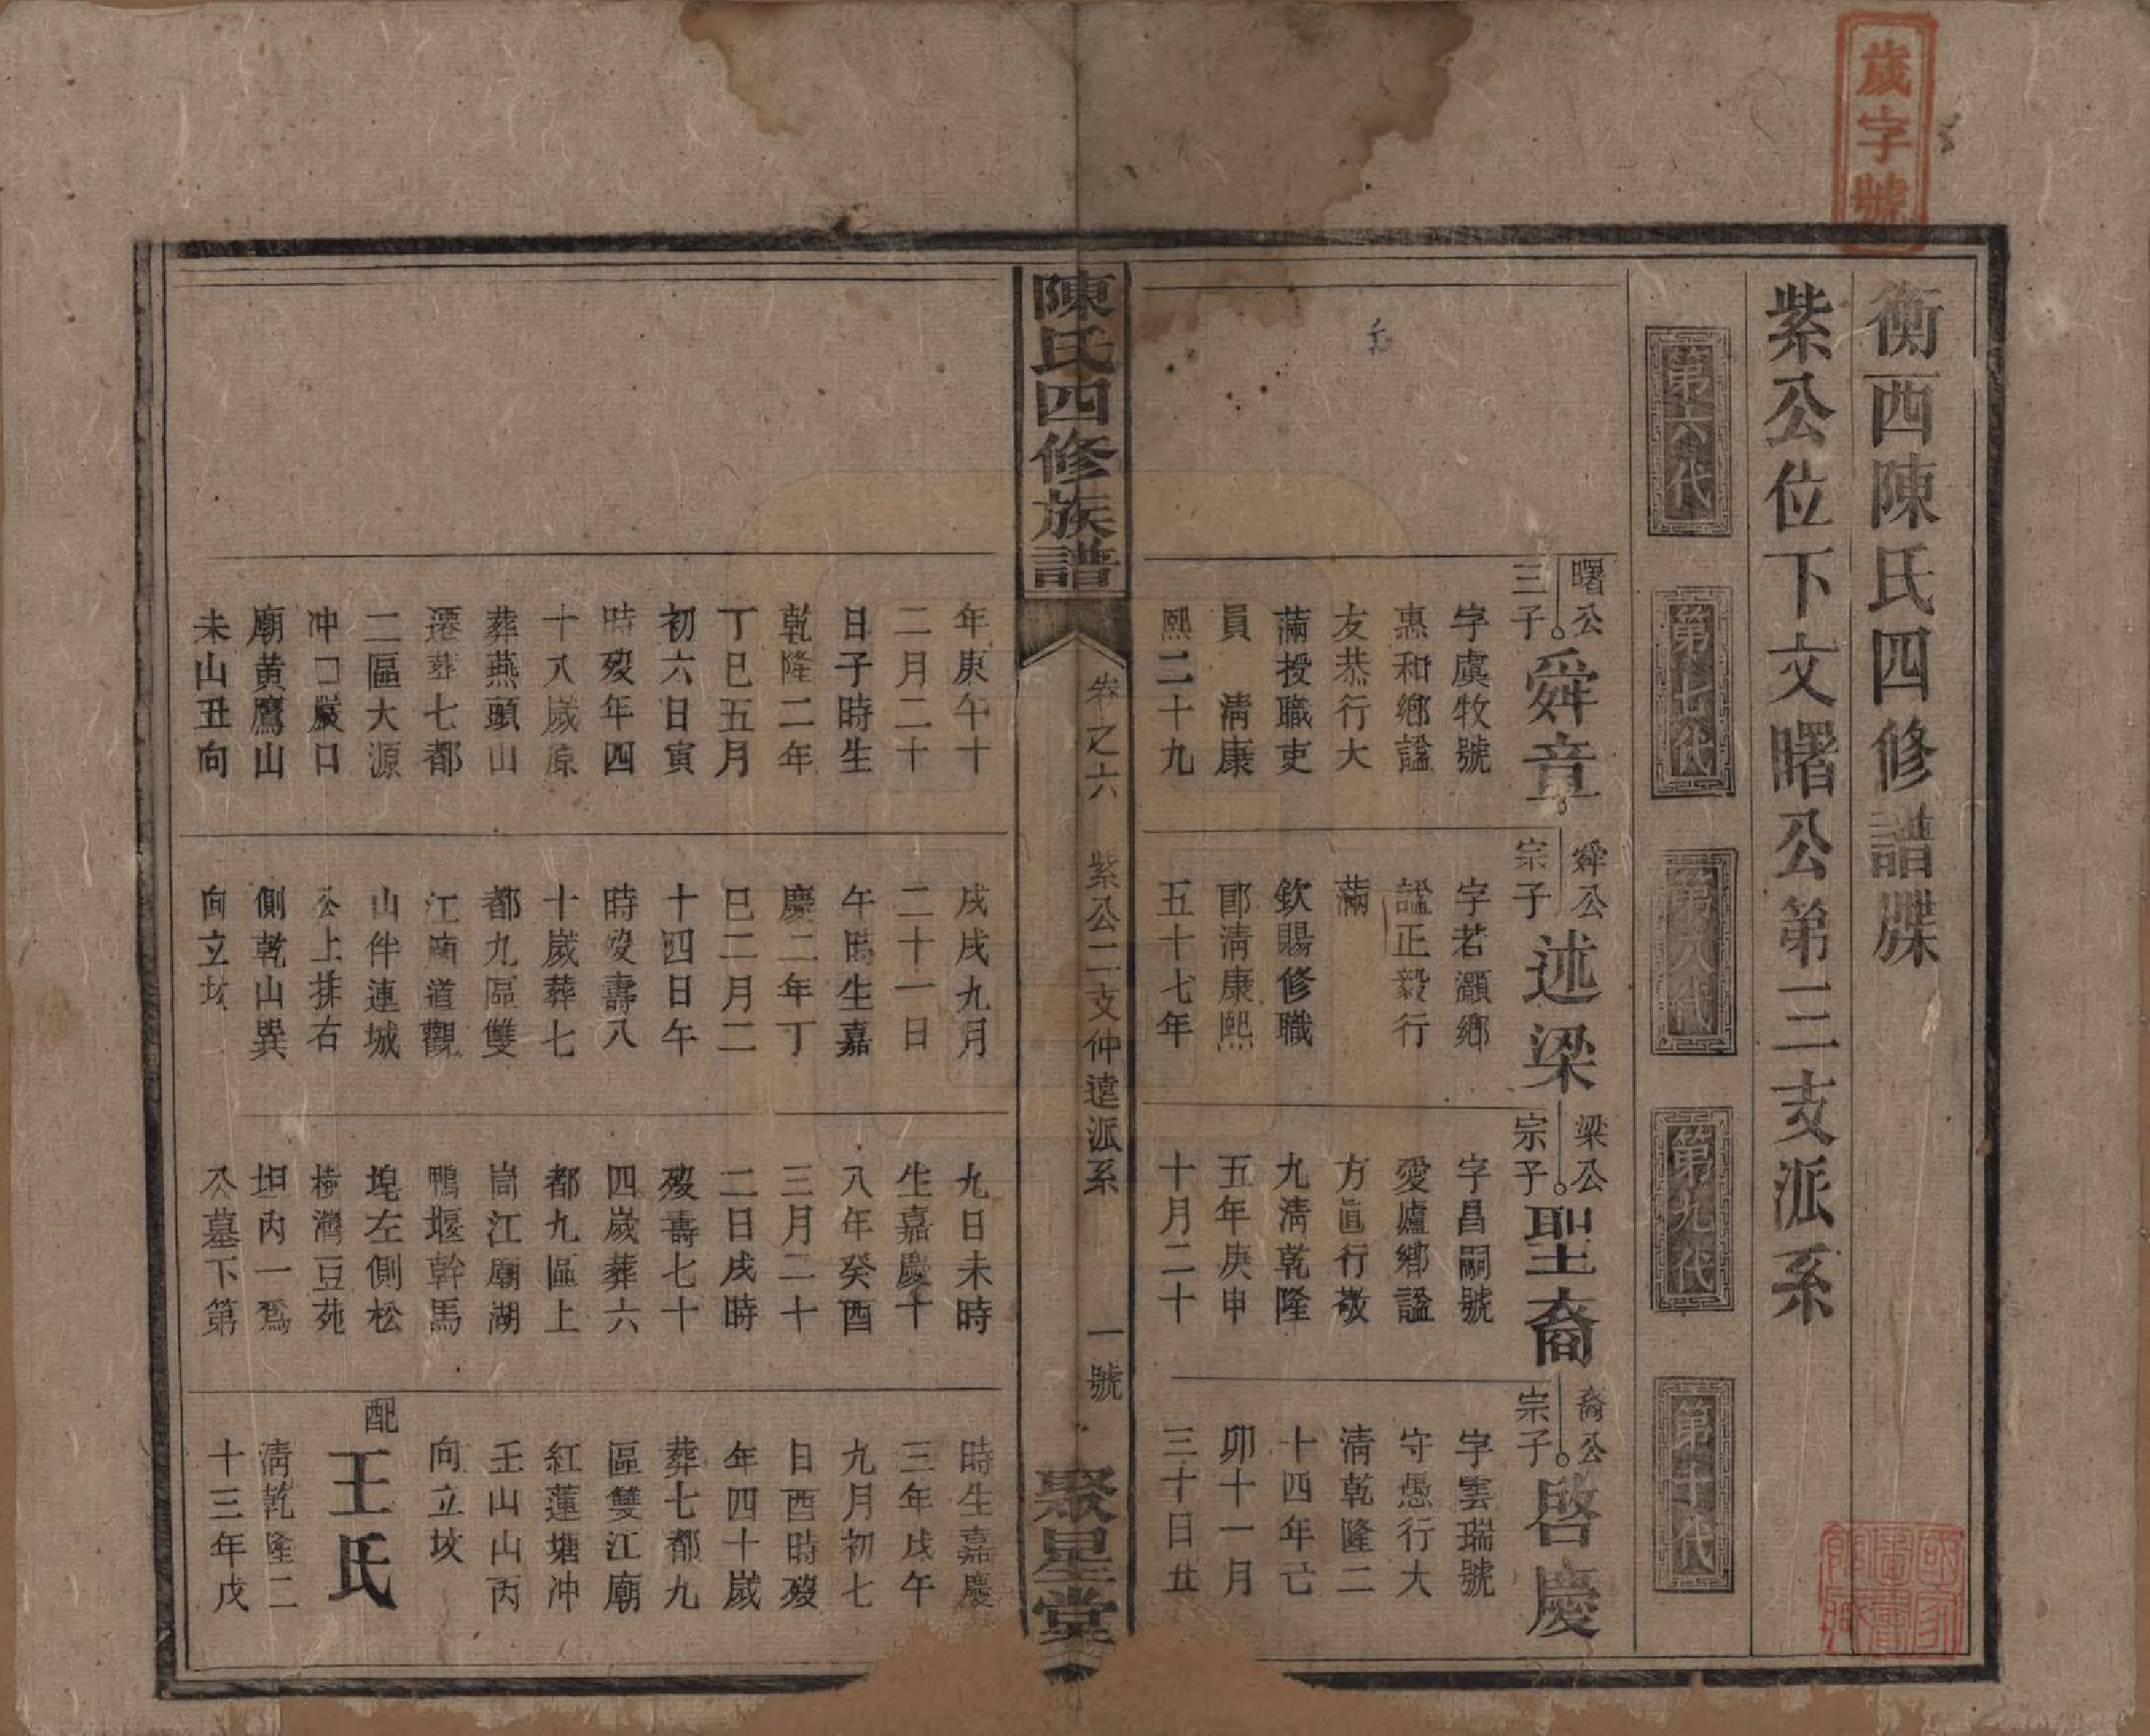 歲字號
衡西陳氏四修譜牒
紫公位下文曙公第三支派系
第六代
第七代
第八代
第九代
第十代
曙公
三子
舜章
字虞牧號
惠和鄉諡
友恭行大
滿授職吏
員 清康
熙二十九
年庚午十
二月二十
日子時生
乾隆二年
丁巳五月
初六日寅
時歿年四
十八歲原
葬燕頭山
遷葬七都
二區大源
冲口嚴口
廟黃鷹山
未山丑向
舜公
宗子
述梁
字若灝鄉
諡正毅行
滿
欽賜修職
郎清康熙
五十七年
戌戌九月
二十一日
午時生嘉
慶二年丁
巳二月二
十四日午
時歿壽八
十歲葬七
都九區雙
江廟道觀
山伴連城
公上排右
側乾山巽
向立坟
梁公
宗子
聖裔
字昌嗣號
愛廬鄉諡
方直行敬
九清乾隆
五年庚申
十月二十
九日未時
生嘉慶十
八年癸酉
三月二十
二日戌時
歿壽七十
四歲葬六
都九區上
崗江廟湖
鴨堰幹馬
埠左側松
樹灣豆苑
坦內一爲
公墓下第
裔公
宗子
啓慶
字雲瑞號
守愚行大
清乾隆二
十四年己
卯十一月
三十日丑
時生嘉慶
三年戊午
九月初七
日酉時歿
年四十歲
葬七都九
區雙江廟
紅蓮塘冲
壬山山丙
向立坟
配
王氏
清乾隆二
十三年戊
陳氏四修族譜
卷之六 紫公二支仲達派系 一號
聚星堂